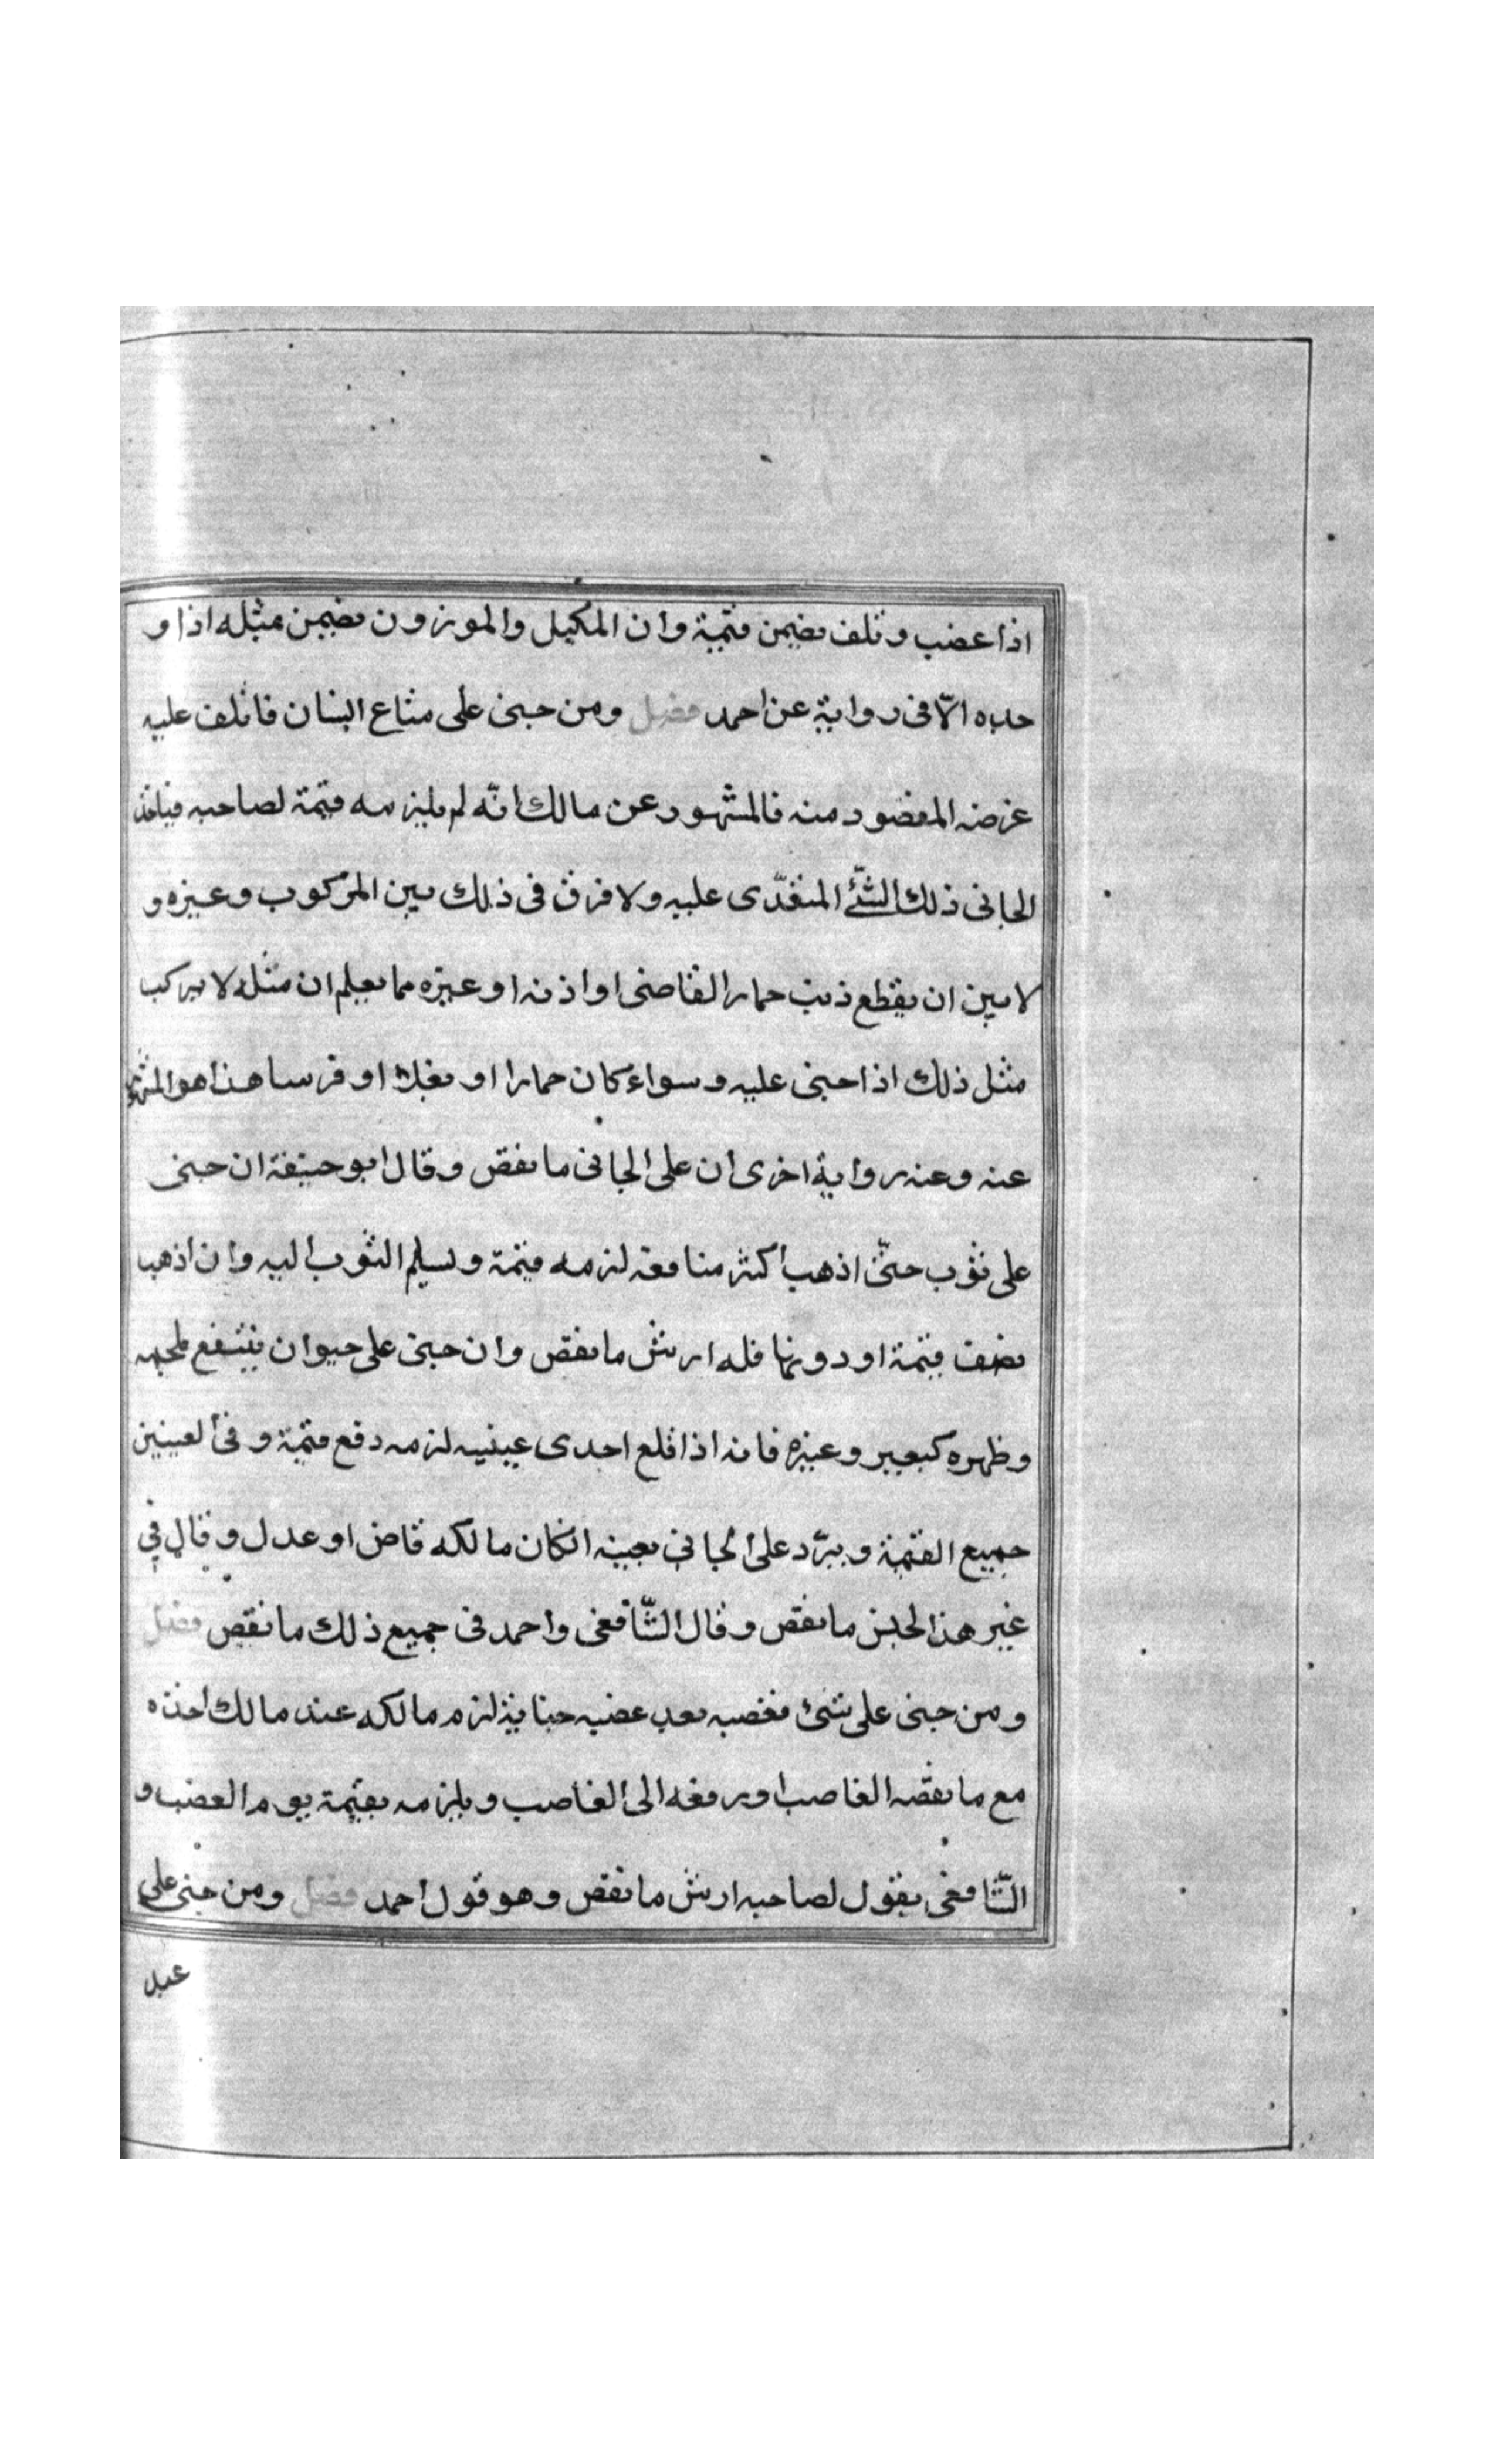 اذا غصب وتلف يضمن قيمته وان المكيل والموزون يضمن مثله اذا و
جده الّا فى رواية عن احمد فصل ومن جنى على متاع انسان فاتلف عليه
غرضه المقصود منه فالمشهور عن مالك انّه لم يلزمه قيمة لصاحبه فياخذ
الجانى ذلك الشّئ المتعدّى عليه ولا فرق فى ذلك بين المركوب وغيره و
لا بين ان يقطع ذنب حمار القاضى او اذنه او غيره مما يعلم ان مثله لا يركب
مثل ذلك اذا جنى عليه وسواء كان حمارا او بغلا او فرسا هذا هو المشهور
عنه وعنه رواية اخرى ان على الجانى ما نقص وقال ابو حنيفة ان جنى
على ثوب حتّى اذهب اكثر منافعه لزمه قيمة وتسليم الثوب اليه وان اذهب
نصف قيمة او دونها فله ارش ما نقص وان جنى على حيوان ينتفع بلحمه
وظهره كبعير وغيره فانه اذا قلع احدى عينيه لزمه دفع قيمة وفى العينين
جميع القيمة ويردّ على الجانى بعينه انكان مالكه قاض او عدل وقال فى
غير هذا الجنس ما نقص وقال الشّافعى واحمد فى جميع ذلك ما نقص فصل
ومن جنى على شئ فغصبه بعد غصبه جناية لزم مالكه عند مالك اخذه
مع ما نقصه الغاصب او يرفعه الى الغاصب ويلزمه بقيمة يوم الغصب و
الشّافعى يقول لصاحبه ارش ما نقص وهو قول احمد فصل ومن جنى على
عبد